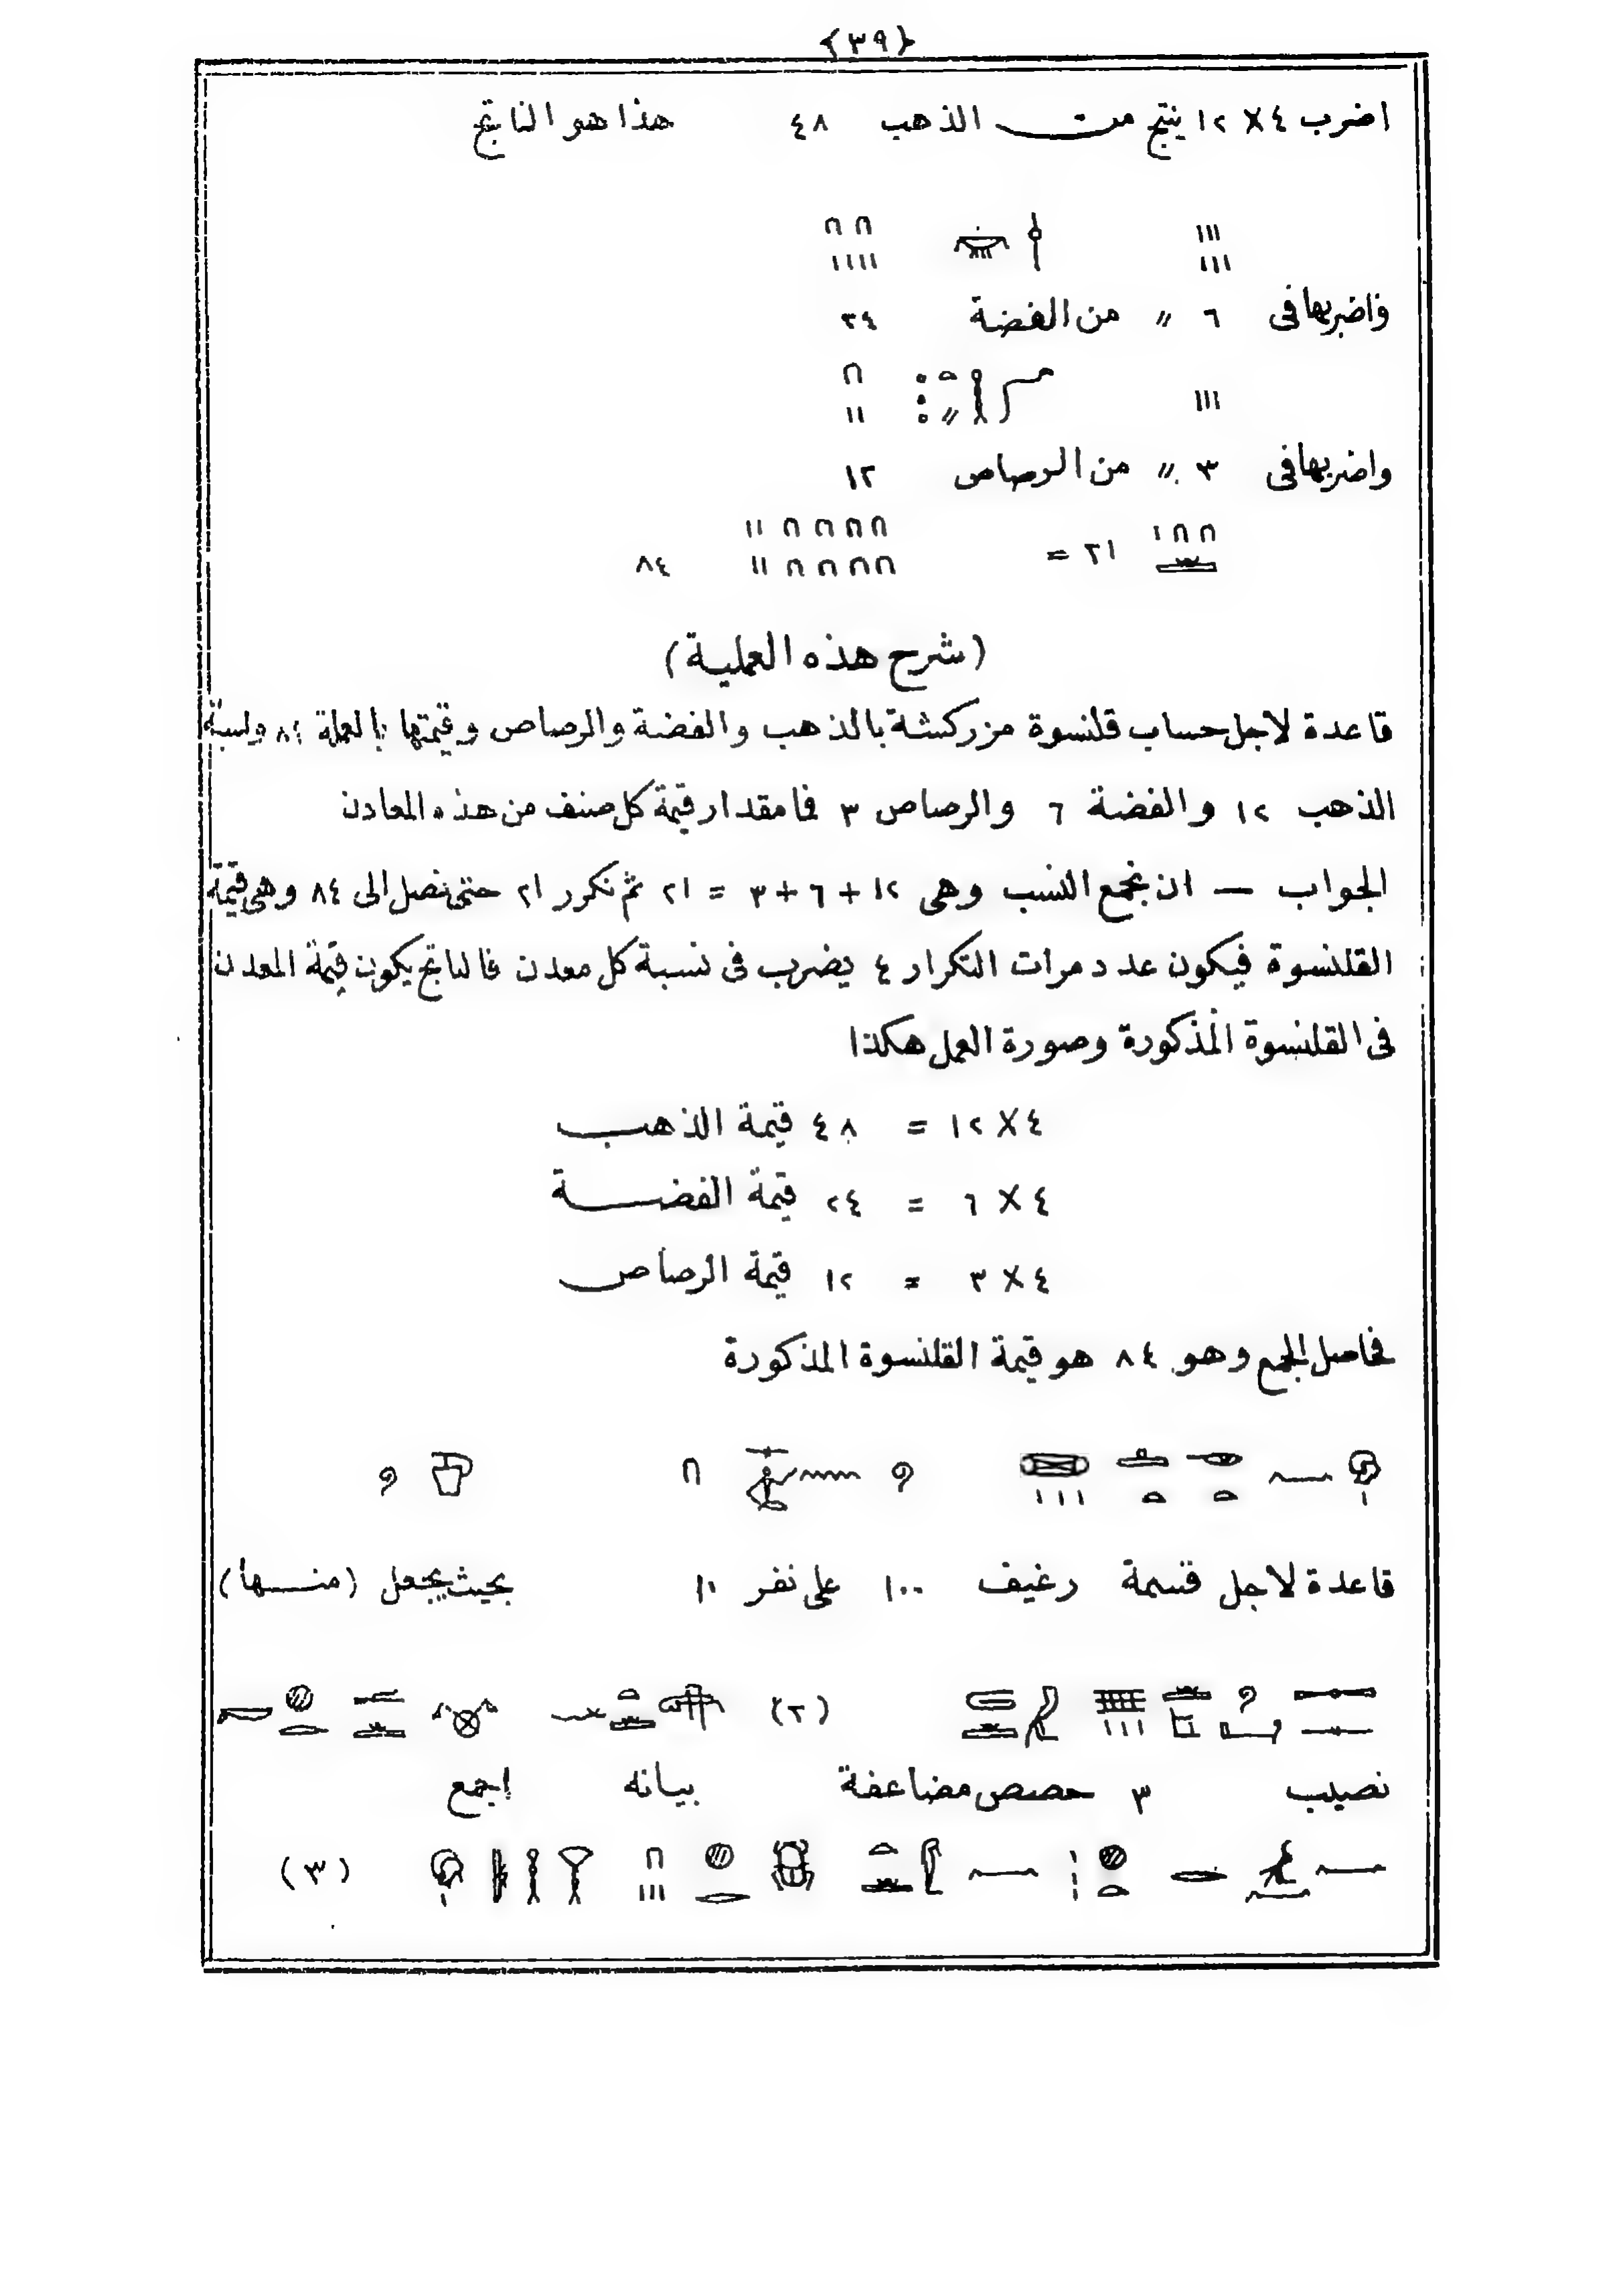 ﴿٣٩﴾
اضرب ٤ × ١٢ ينتج من الذهب ٤٨ هذا هو الناتج
فاضربها فى ٦ 〃 من الفضة ٣٤
واضربها فى ٣ 〃 من الرصاص ١٢
٢١ = ٨٤
(شرح هذه العملية)
قاعدة لاجل حساب قلنسوة مزركشة بالذهب والفضة والرصاص وقيمتها بالعملة ٨٤ ونسبة
الذهب ١٢ والفضة ٦ والرصاص ٣ فما مقدار قيمة كل صنف من هذه المعادن
الجواب — ان نجمع النسب وهى ١٢ + ٦ + ٣ = ٢١ ثم نكرر ٢١ حتى نصل الى ٨٤ وهى قيمة
القلنسوة فيكون عدد مرات التكرار ٤ يضرب فى نسبة كل معدن فالناتج يكون قيمة المعدن
فى القلنسوة المذكورة وصورة العمل هكذا
٤ × ١٢ = ٤٨ قيمة الذهب
٤ × ٦ = ٢٤ قيمة الفضة
٤ × ٣ = ١٢ قيمة الرصاص
فحاصل الجمع وهو ٨٤ هو قيمة القلنسوة المذكورة
قاعدة لاجل قسمة رغيف ١٠٠ على نفر ١٠ بحيث يجعل (منها)
(٢)
نصيب ٣ حصص مضاعفة بيانه اجمع
(٣)